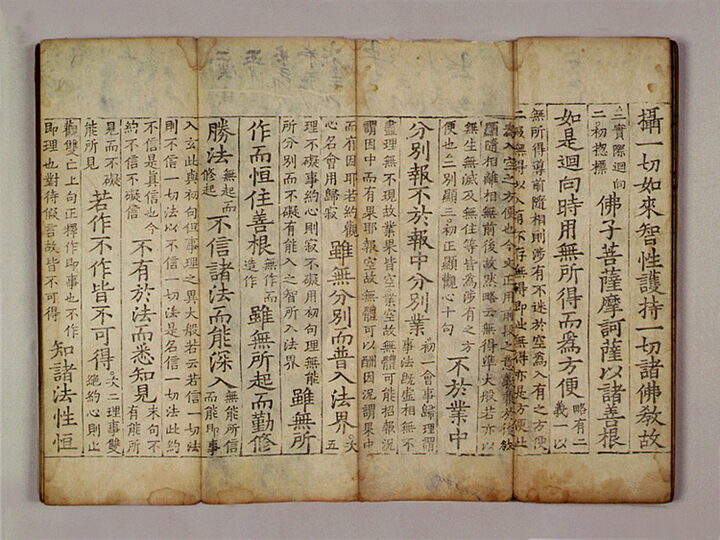 攝一切如來智性護持一切諸佛教故
三實際迴向
二初摠標
佛子菩薩摩訶薩以諸善根
如是迴向時用無所得而爲方便
略有二
義一以
無所得導前隨相則涉有不迷於空爲入有之方便
二假無得以入有不存無得即此無得亦是方便
爲入空之方便也今文正用兩段之意
顯隨相離相無前後故然略云無得準大般若亦以
無生無滅及無住等皆爲涉有之方
便也二別顯三初正顯觀心十句
不於業中
分別報不於報中分別業
初一會事歸理謂
事法旣虛相無不
盡理無不現故業果皆空業空故無體可能招報況
謂因中而有果耶報空故無體可以酬因況謂果中
而有因耶若約觀
心名會用歸寂
雖無分別而普入法界
次
五
理不礙事約心則寂不礙用初句理無能
所分別而不礙有能入之智所入法界
雖無所
作而恒住善根
無作而
造作
雖無所起而勤修
勝法
無起而
修起
不信諸法而能深入
無能所信
而能即事
入玄此與初句但事理之異大般若云若信一切法
則不信一切法以不信一切法是名信一切法此約
不信是真信也今
約不信不礙信
不有於法而悉知見
末句不
有能所
見而不礙
能所見
若作不作皆不可得
次二理事雙
絶約心則止
觀雙亡上句正釋作即事也不作
即理也對待假言故皆不可得
知諸法性恒